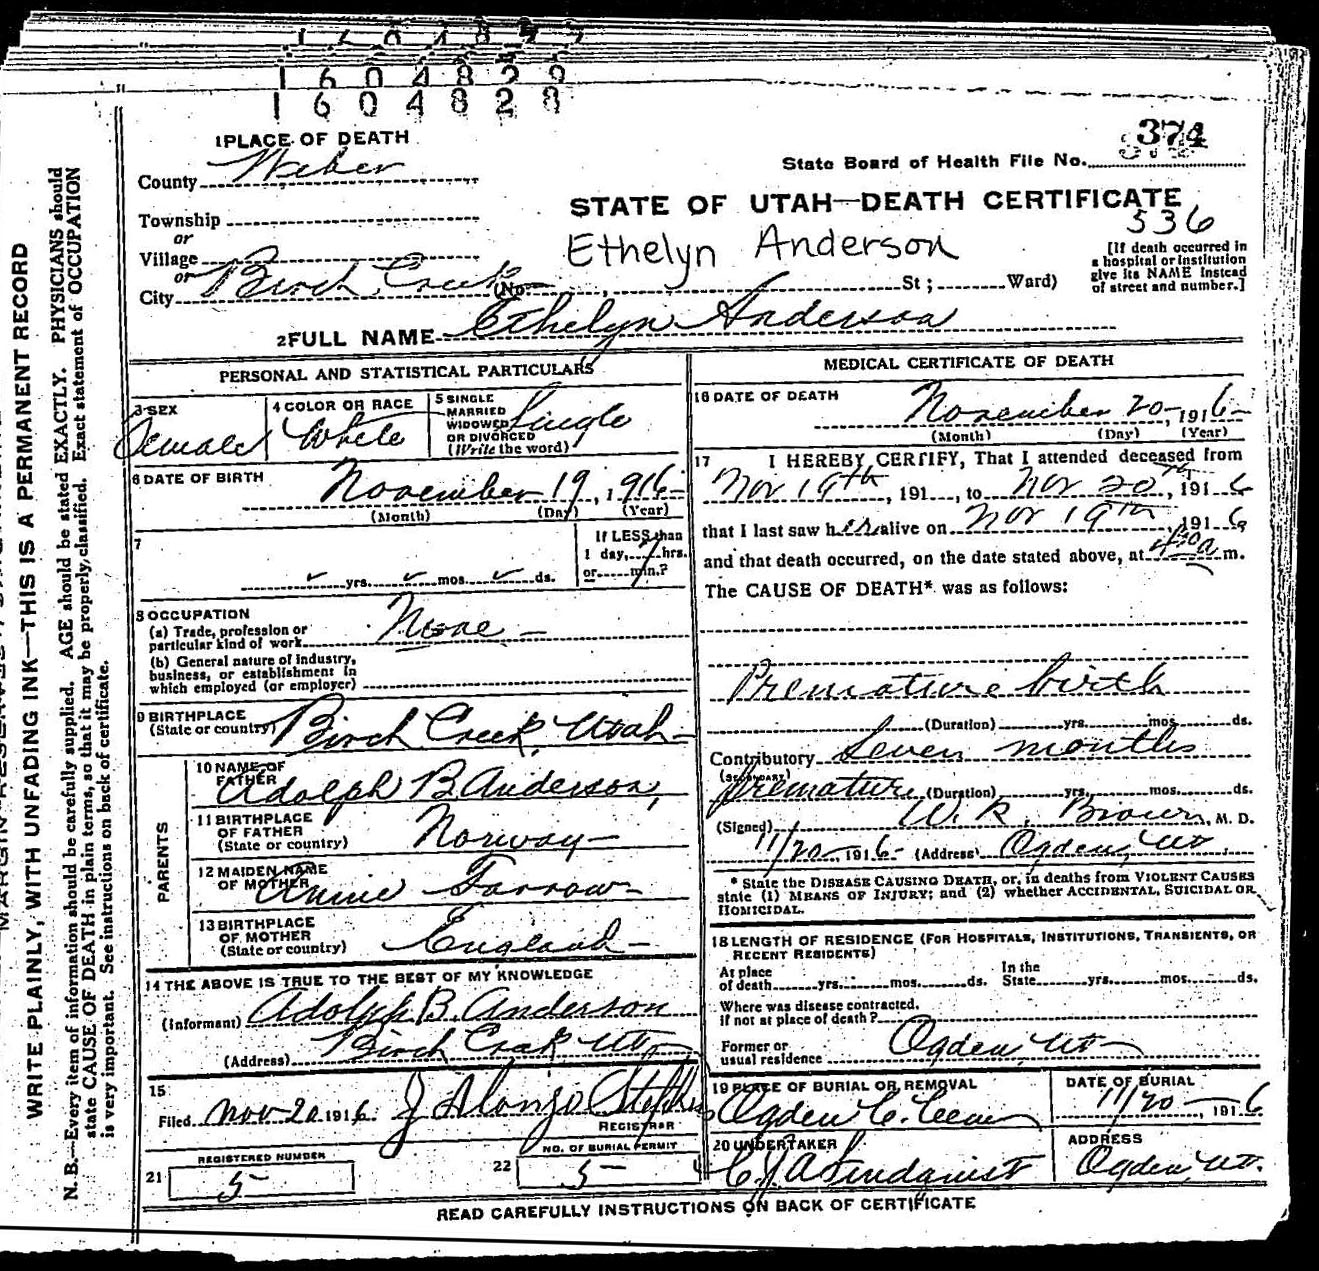 1 6 0 4 8 2 9
1 6 0 4 8 2 8
374
1 PLACE OF DEATH
State Board of Health File No.
County Weber
STATE OF UTAH—DEATH CERTIFICATE
536
Township
or
Village
or
City Birch Creek (No. St; Ward)
Ethelyn Anderson
[If death occurred in a hospital or institution give its NAME instead of street and number.]
2 FULL NAME Ethelyn Anderson
PERSONAL AND STATISTICAL PARTICULARS
3 SEX Female
4 COLOR OR RACE White
5 SINGLE MARRIED WIDOWED OR DIVORCED (Write the word) Single
6 DATE OF BIRTH November 19, 1916
(Month) (Day) (Year)
7 yrs. mos. ds.
If LESS than
1 day, 7 hrs.
or min.?
8 OCCUPATION
(a) Trade, profession or
particular kind of work None
(b) General nature of industry,
business, or establishment in
which employed (or employer)
9 BIRTHPLACE
(State or country) Birch Creek, Utah
PARENTS
10 NAME OF
FATHER Adolph B Anderson,
11 BIRTHPLACE
OF FATHER
(State or country) Norway
12 MAIDEN NAME
OF MOTHER Annie Farrow
13 BIRTHPLACE
OF MOTHER
(State or country) England
14 THE ABOVE IS TRUE TO THE BEST OF MY KNOWLEDGE
(Informant) Adolph B. Anderson
(Address) Birch Creek Ut
15
Filed Nov 20 1916 J Alonzo
REGISTRAR
REGISTERED NUMBER
21 5
NO. OF BURIAL PERMIT
22 5
MEDICAL CERTIFICATE OF DEATH
16 DATE OF DEATH
November 20, 1916
(Month) (Day) (Year)
17 I HEREBY CERTIFY, That I attended deceased from
Nov 19th, 191 , to Nov 20th, 1916
that I last saw her alive on Nov 19th 1916
and that death occurred, on the date stated above, at m.
The CAUSE OF DEATH* was as follows:
Premature birth
(Duration) yrs. mos. ds.
Contributory Seven months
(SECONDARY)
premature (Duration) yrs. mos. ds.
(Signed) W. R. Brown, M. D.
11/20 1916 (Address) Ogden, Ut.
* State the DISEASE CAUSING DEATH, or, in deaths from VIOLENT CAUSES
state (1) MEANS OF INJURY; and (2) whether ACCIDENTAL, SUICIDAL OR
HOMICIDAL.
18 LENGTH OF RESIDENCE (FOR HOSPITALS, INSTITUTIONS, TRANSIENTS, OR
RECENT RESIDENTS)
At place
of death yrs. mos. ds.
In the
State yrs. mos. ds.
Where was disease contracted.
if not at place of death?
Former or
usual residence Ogden, Ut
19 PLACE OF BURIAL OR REMOVAL
Ogden C. Cem
DATE OF BURIAL
11/20 1916
20 UNDERTAKER
C. J. A. Lindquist
ADDRESS
Ogden, Ut.
READ CAREFULLY INSTRUCTIONS ON BACK OF CERTIFICATE
WRITE PLAINLY, WITH UNFADING INK—THIS IS A PERMANENT RECORD
N. B.—Every item of information should be carefully supplied. AGE should be stated EXACTLY. PHYSICIANS should
state CAUSE OF DEATH in plain terms, so that it may be properly classified. Exact statement of OCCUPATION
is very important. See instructions on back of certificate.